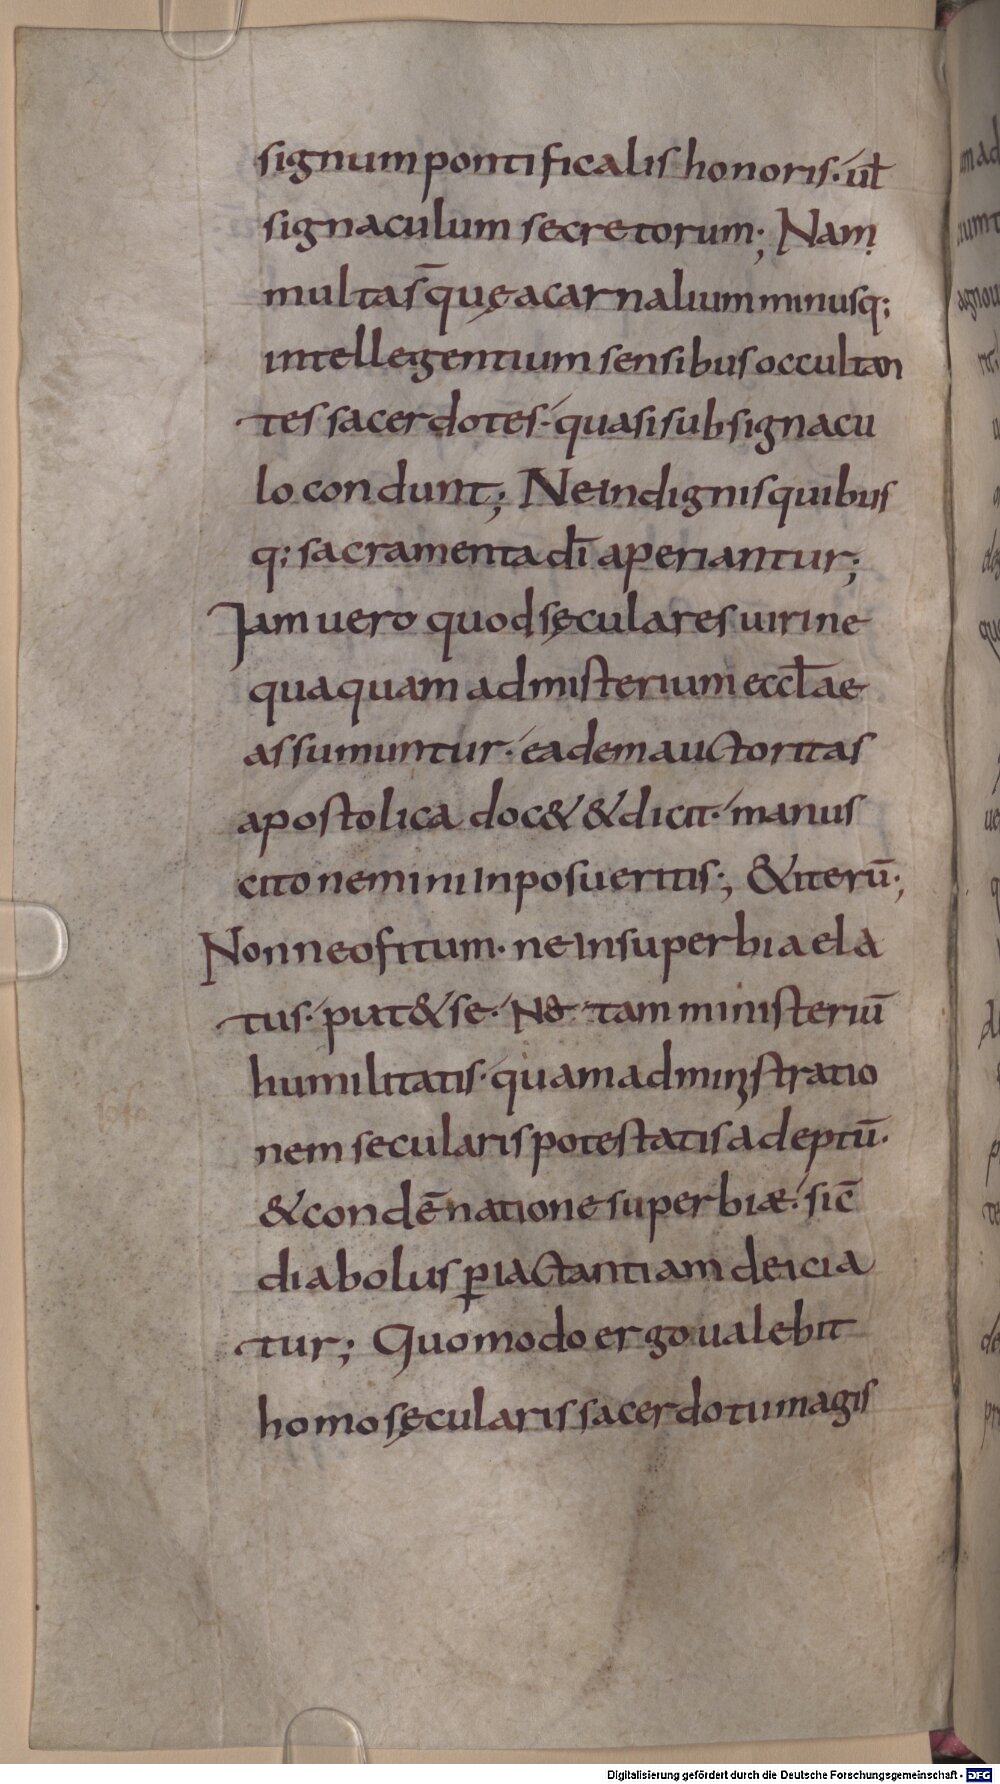 signum pontificalis honoris· ul̄
signaculum secretorum·; Nam
multas̄ quę a carnalium minusq;
intellegentium sensibus occultan
tes sacerdotes· quasi sub signacu
lo condunt; Ne indignis quibus
q; sacramenta dī aperiantur;
Iam uero quod sęculares uiri ne
quaquam ad misterium eccl̄ae
assumuntur· eadem auctoritas
apostolica doc& & dicit· manus
cito nemini inposueritis·; & iterū·;
Non neofitum· ne in superbia ela
tus· put& se· tam ministeriū
humilitatis· quam administratio
nem secularis potestatis adeptū·
& condēnatione superbiæ· sic̄
diabolus ꝑ iactantiam deicia
tur; Quomodo ergo ualebit
homo sęcularis sacerdotum magis
Digitalisierung gefördert durch die Deutsche Forschungsgemeinschaft - DFG